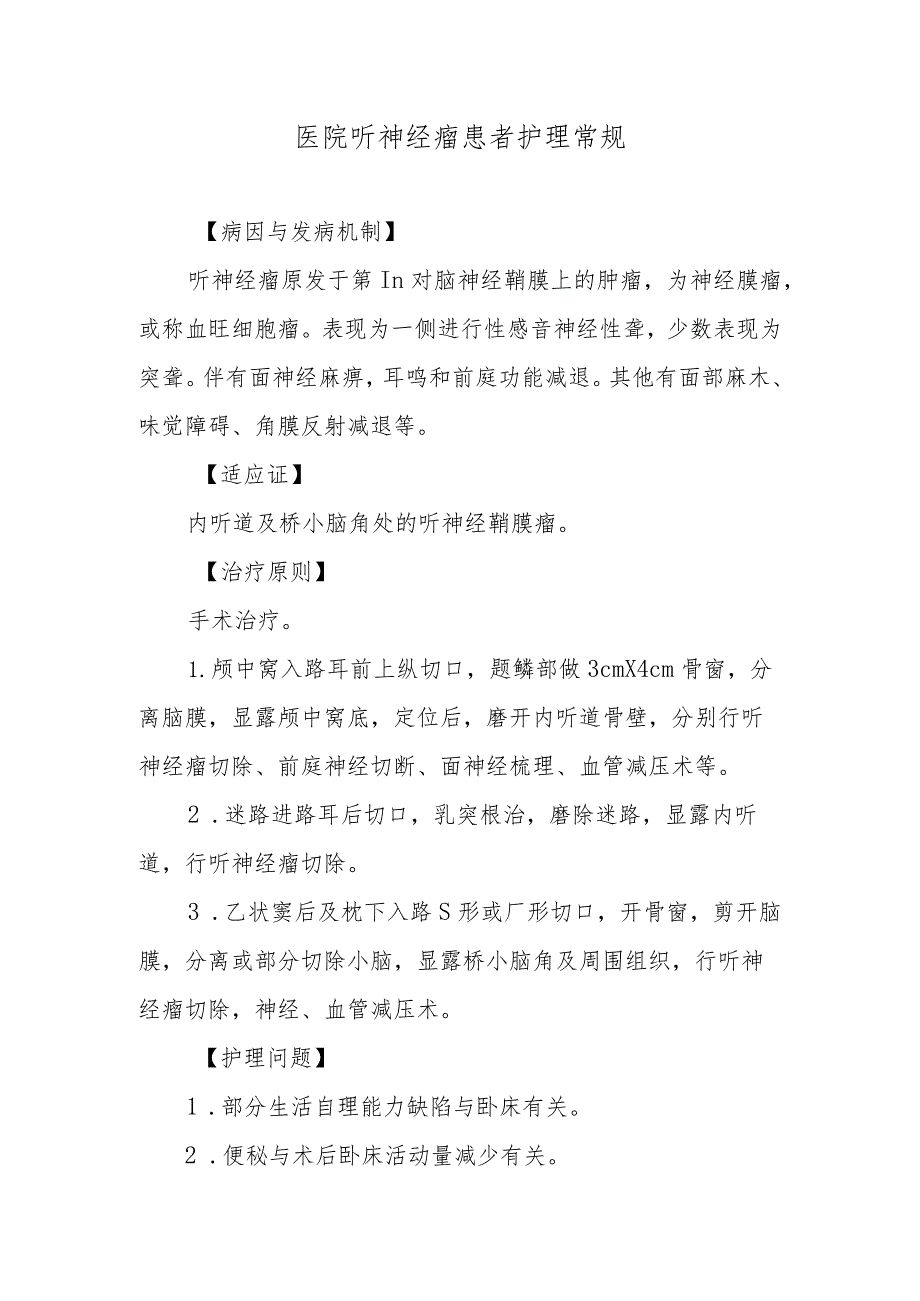 医院听神经瘤患者护理常规
【病因与发病机制】
听神经瘤原发于第In对脑神经鞘膜上的肿瘤，为神经膜瘤，
或称血旺细胞瘤。表现为一侧进行性感音神经性聋，少数表现为
突聋。伴有面神经麻痹，耳鸣和前庭功能减退。其他有面部麻木、
味觉障碍、角膜反射减退等。
【适应证】
内听道及桥小脑角处的听神经鞘膜瘤。
【治疗原则】
手术治疗。
1.颅中窝入路耳前上纵切口，题鳞部做3cmX4cm骨窗，分
离脑膜，显露颅中窝底，定位后，磨开内听道骨壁，分别行听
神经瘤切除、前庭神经切断、面神经梳理、血管减压术等。
2.迷路进路耳后切口，乳突根治，磨除迷路，显露内听
道，行听神经瘤切除。
3.乙状窦后及枕下入路S形或厂形切口，开骨窗，剪开脑
膜，分离或部分切除小脑，显露桥小脑角及周围组织，行听神
经瘤切除，神经、血管减压术。
【护理问题】
1.部分生活自理能力缺陷与卧床有关。
2.便秘与术后卧床活动量减少有关。